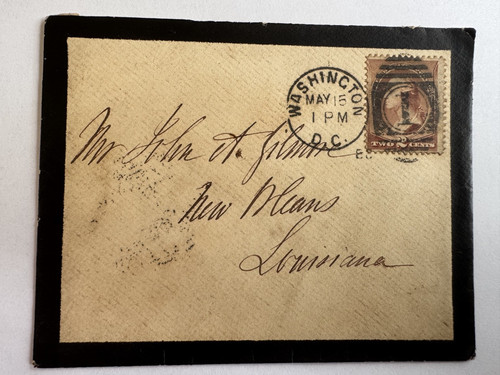 WASHINGTON
MAY 15
1 PM
D.C.
1
TWO 2 CENTS
Mr. John A. Gilmore
New Orleans
Louisiana